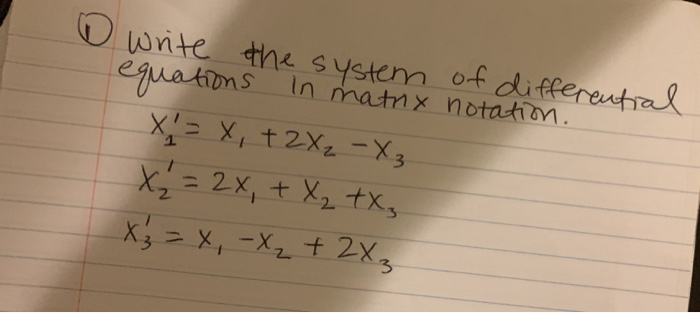 ① Write the system of differential
equations in matrix notation.
x₁' = x₁ + 2x₂ - x₃
x₂' = 2x₁ + x₂ + x₃
x₃' = x₁ - x₂ + 2x₃